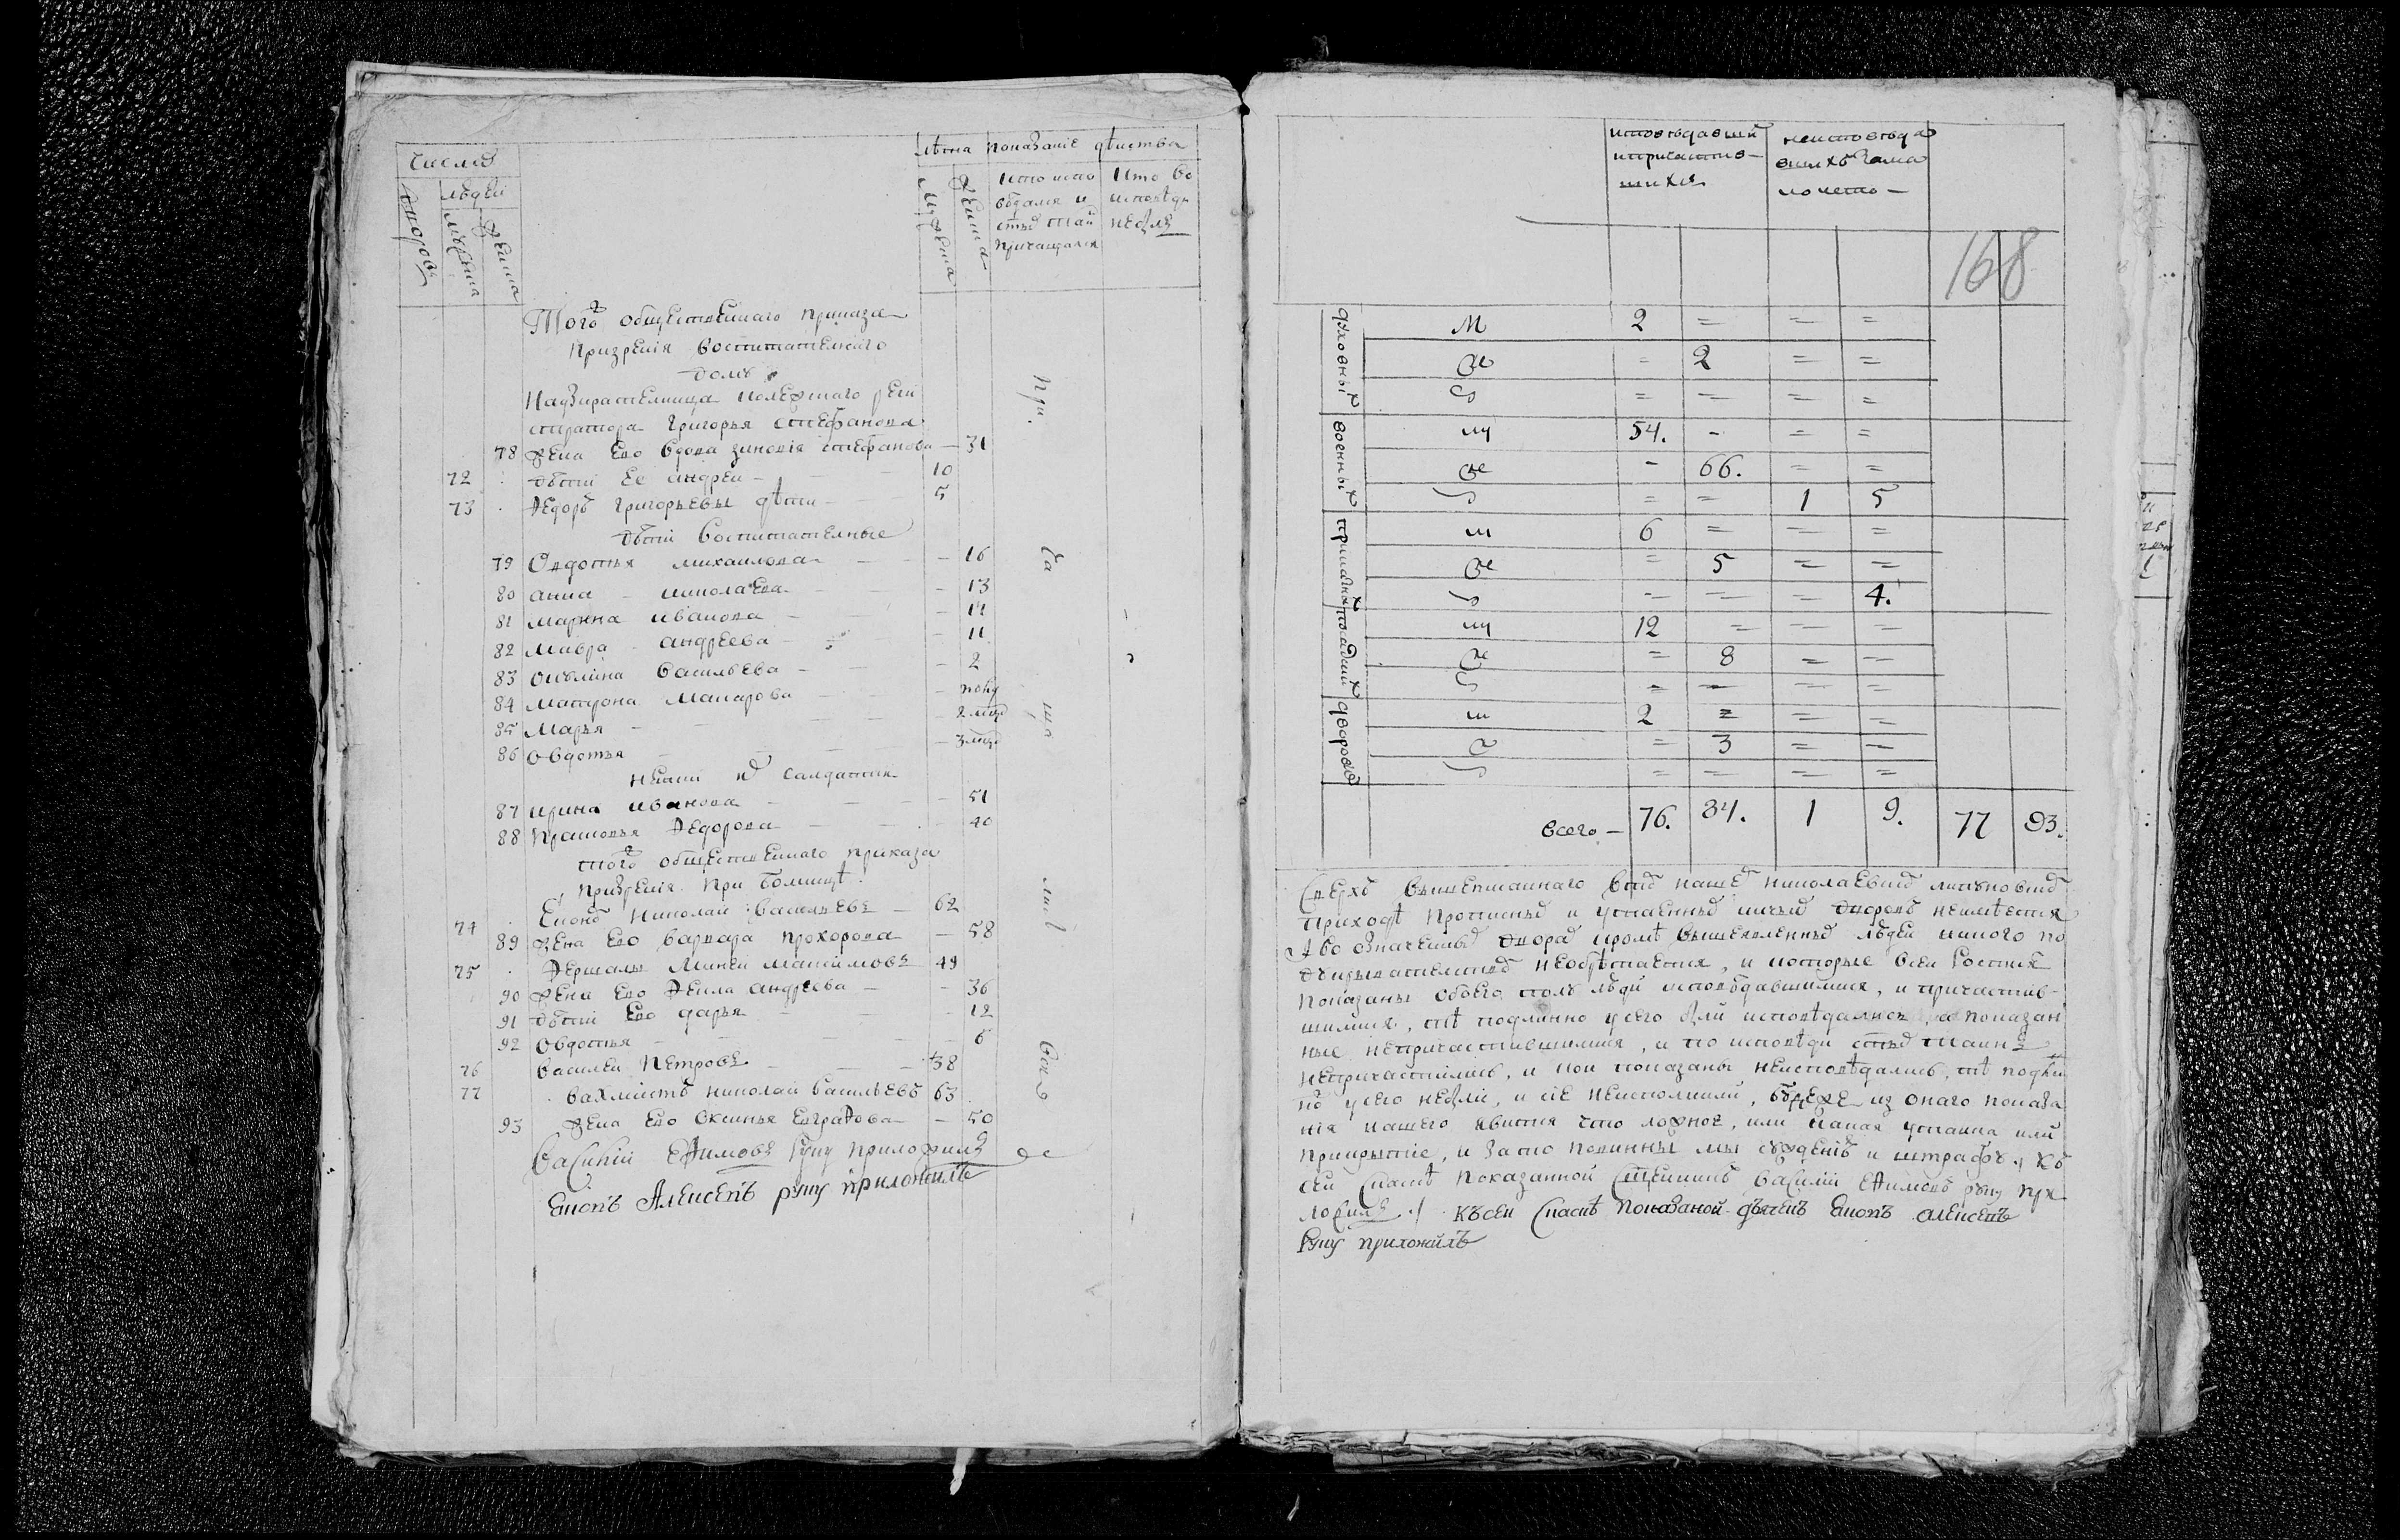 Число
людей
дворовъ
мужеска
женска
лѣта
мужеска
женска
показаніе дѣиства
кто испо
вѣдался и
стыхъ таи
причащался
Кто во
исповѣди
небылъ
Того общественнаго приказа
призрения воспитателнаго
дому
Надзирателница колежскаго реги
стратора Григорья Стефанова
78 жена Ево вдова зиновия стефанова — 31
72 дѣти Ее андреи — 10
73 Ѳедоръ григорьевы дѣти — 5
дѣти воспитателные
79 Овдотья михаилова — 16
80 анна николаева — 13
81 марина иванова — 14
82 мавра андреева — 11
83 васильева — 2
84 матрона макарова — полу
85 Марья — 2 мца
86 Овдотья — 3 мца
салдатки
87 ирина иванова — 51
88 Прасковья Ѳедорова — 40
того общественнаго приказа
призрения при болницѣ
74 Николаи васильевъ — 62
89 жена Ево варвара прохорова — 58
75 Минеи Максимовъ 49
90 жена Ево андреева — 36
91 дѣти Ево дарья — 12
92 Овдотья — 6
76 василеи Петровъ — 38
77 вахмистъ николаи васильевъ 63
93 жена Ево Оксинья Евграѳова — 50
Василий Еѳимовъ руку приложилъ
Алексеевъ руку приложилъ
При
ча
ща
лис
всѣ
исповѣдавши
ипричастив—
шихся
неисповѣда
вшихъ зама
лолетс—
168
духовныхъ
м 2 = = =
же = 2 = =
= = = =
военныхъ
му 54. - = =
же - 66. = =
= = 1 5
приказныхъ
м 6 = = =
же = 5 = =
= = = 4.
посадцкихъ
му 12 = = =
же = 8 = =
= = = =
дворовых
м 2 = = =
= 3 = =
= = = =
всего — 76. 84. 1 9. 77 93.
Сверхъ вышеписаннаго въ нашеи николаевскои
приходѣ прописныхъ и утаенныхъ ничьихъ дворовъ неимѣется
А во означенныхъ дворахъ кромѣ вышеявленныхъ людеи никого по
необрѣтается, и которые всеи росписѣ
показаны обоего полу люди исповѣдавшимися, и причастив-
шимися, тѣ подлинно у сего исповѣдались, а показан
ные непричастившимися, и по исповѣди стыхъ таинъ
непричастились, и кои показаны неисповѣдались, тѣ подлин
но у сего небыли, и сие неисполнили, буде же из онаго показа
ния нашего явится что ложное, или какая утаика или
прикрытие, и за то повинны мы суждению и штрафу къ
сеи скаскѣ показанной Священникъ василий Еѳимовъ руку при
ложилъ къ сеи скаскѣ показаной дьячекъ Алексеевъ
Руку приложилъ